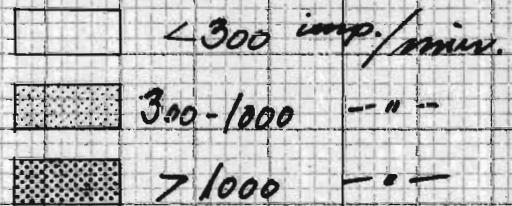 < 300 imp./min.
300-1000 --"--
> 1000 —"—